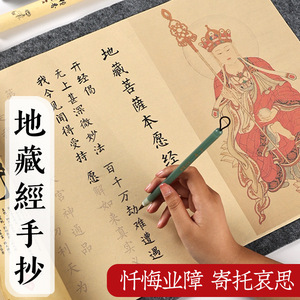 地藏經手抄
地藏菩萨本愿经
开经偈
无上甚深微妙法 百千万劫难遭遇
我今见闻得受持 愿解如来真实义
忏悔业障 寄托哀思